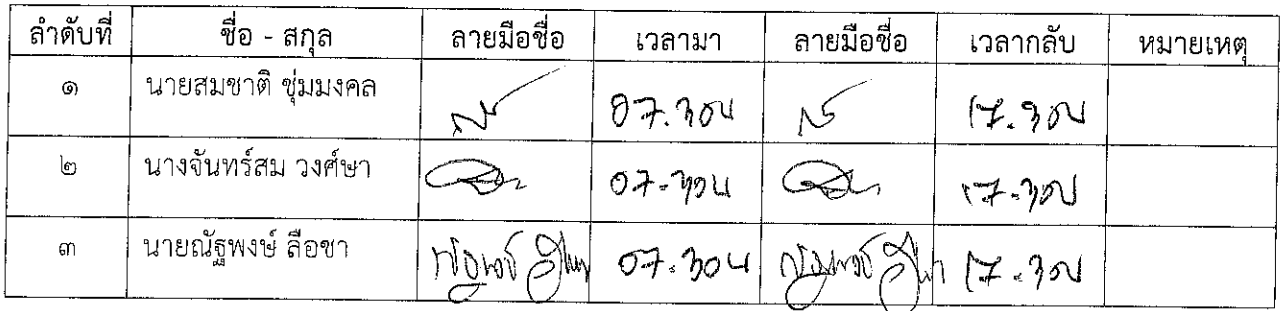 ลำดับที่ ชื่อ - สกุล ลายมือชื่อ เวลามา ลายมือชื่อ เวลากลับ หมายเหตุ
๑ นายสมชาติ ชุ่มมงคล 07.30น 17.30น
๒ นางจันทร์สม วงศ์ษา 07.30น 17.30น
๓ นายณัฐพงษ์ ลือชา ณัฐพงษ์ ลือชา 07.30น ณัฐพงษ์ ลือชา 17.30น